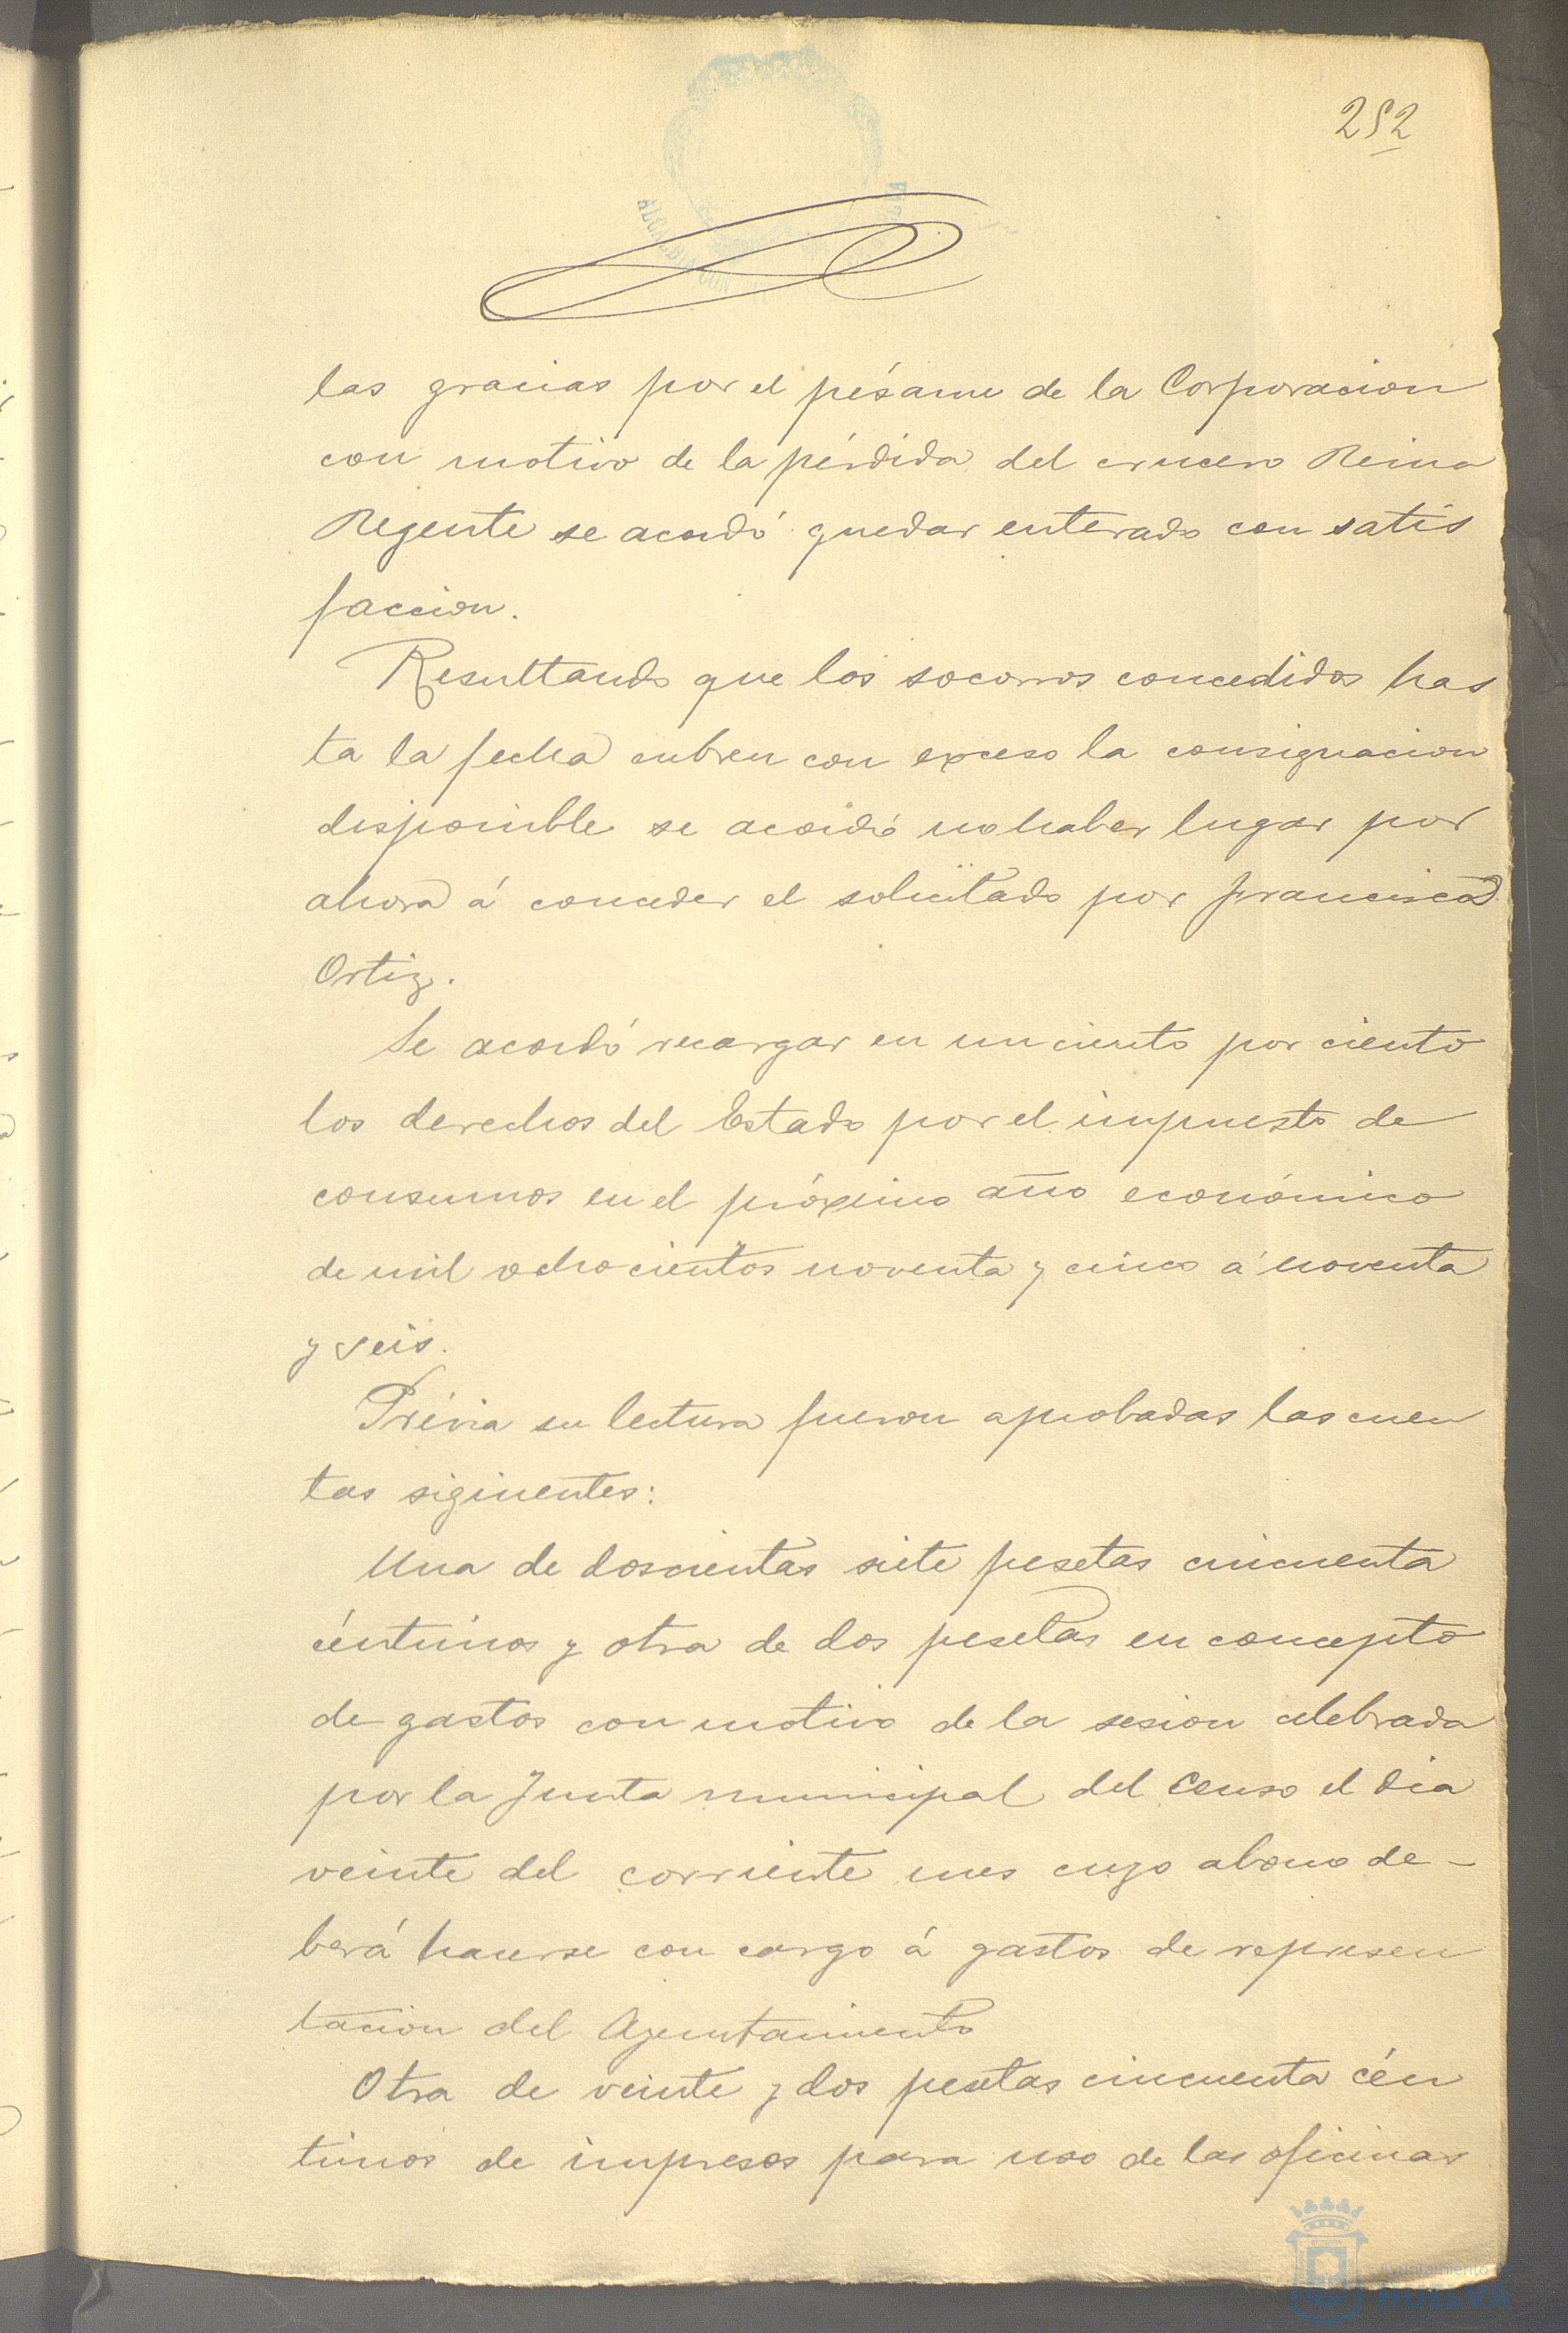 252
las gracias por el pésame de la Corporacion
con motivo de la pérdida del crucero Reina
Regente se acordó quedar enterado con satis
faccion.
Resultando que los socorros concedidos has
ta la fecha cubren con exceso la consignacion
disponible se acordó no haber lugar por
ahora á conceder el solicitado por Francisca
Ortiz.
Se acordó recargar en un ciento por ciento
los derechos del Estado por el impuesto de
consumos en el próximo año económico
de mil ochocientos noventa y cinco á noventa
y seis.
Prévia su lectura fueron aprobadas las cuen
tas siguientes:
Una de doscientas siete pesetas cincuenta
céntimos y otra de dos pesetas en concepto
de gastos con motivo de la sesion celebrada
por la Junta municipal del Censo el dia
veinte del corriente mes cuyo abono de-
berá hacerse con cargo á gastos de represen
tacion del Ayuntamiento
Otra de veinte y dos pesetas cincuenta cén
timos de impresos para uso de las oficinas
Ayuntamiento
HUELVA